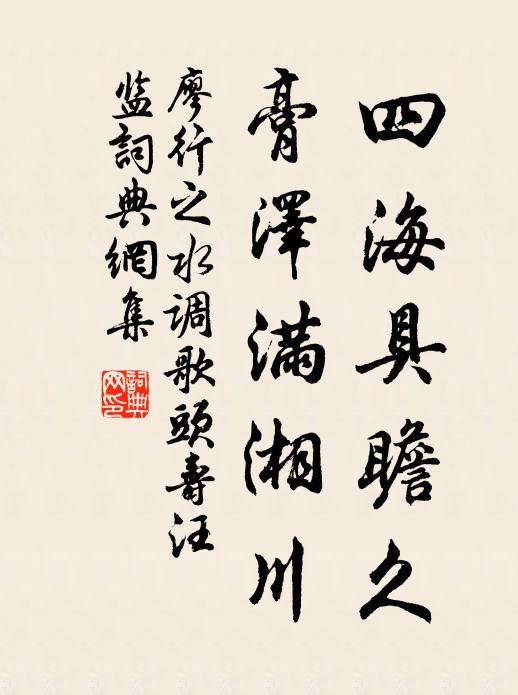 四海具瞻久
膏澤滿湘川
廖行之水调歌頭壽汪
监詞典網集
詞典
网印